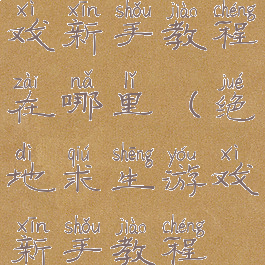 xì xīn shǒu jiào chéng
戏 新 手 教 程
zài nǎ lǐ jué
在 哪 里 ( 绝
dì qiú shēng yóu xì
地 求 生 游 戏
xīn shǒu jiào chéng
新 手 教 程